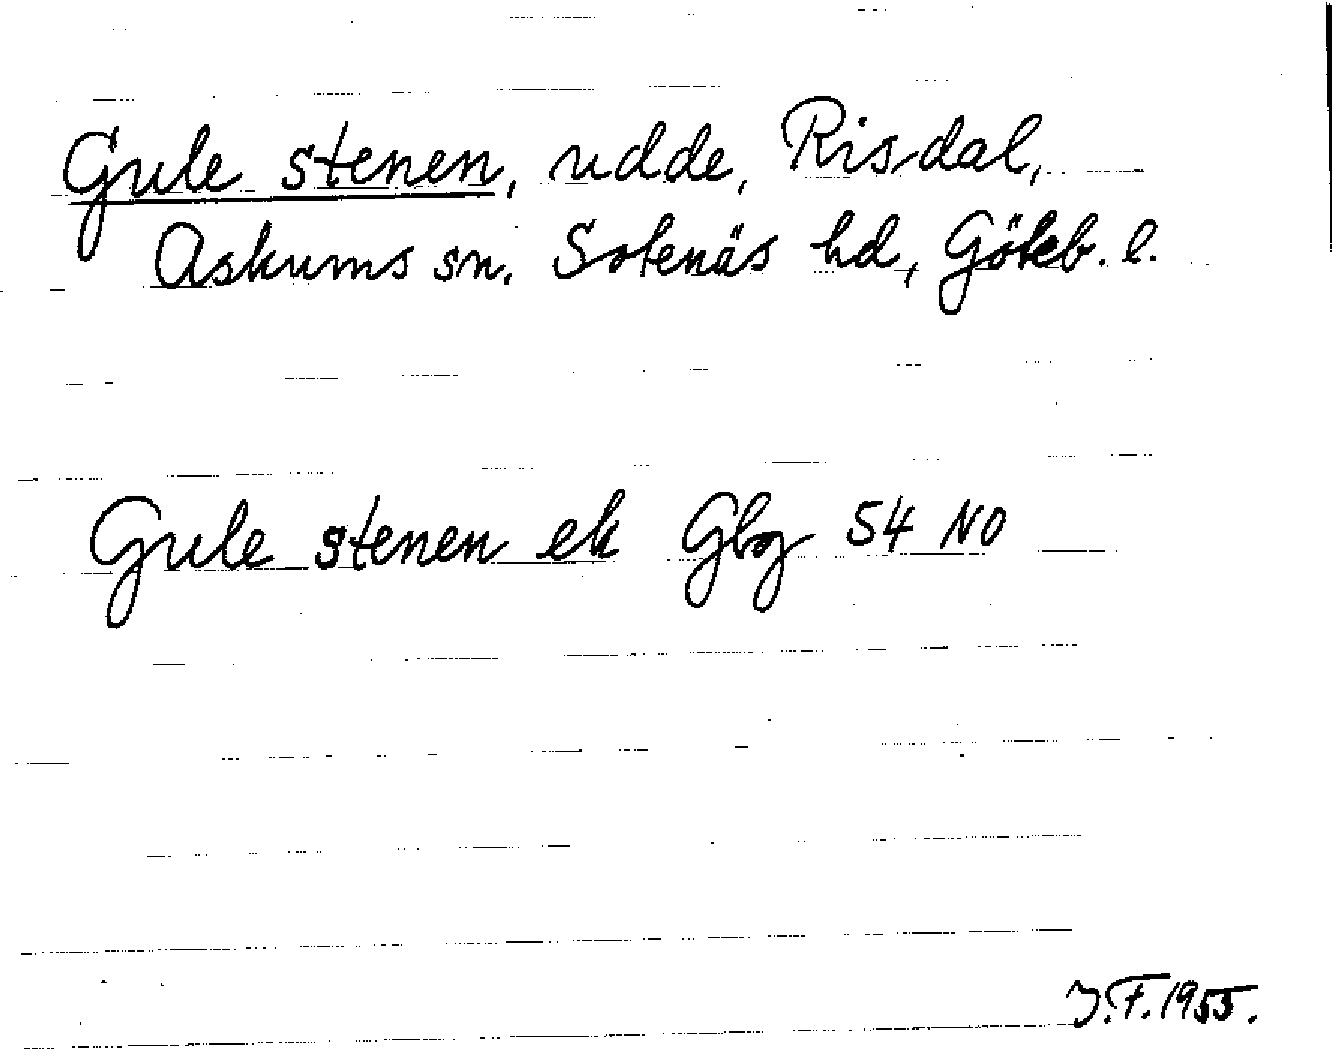 Gule stenen, udde, Risdal,
Askums sn. Sotenäs hd, Göteb. l.
Gule stenen ek Gbg 54 NO
J.F. 1955.